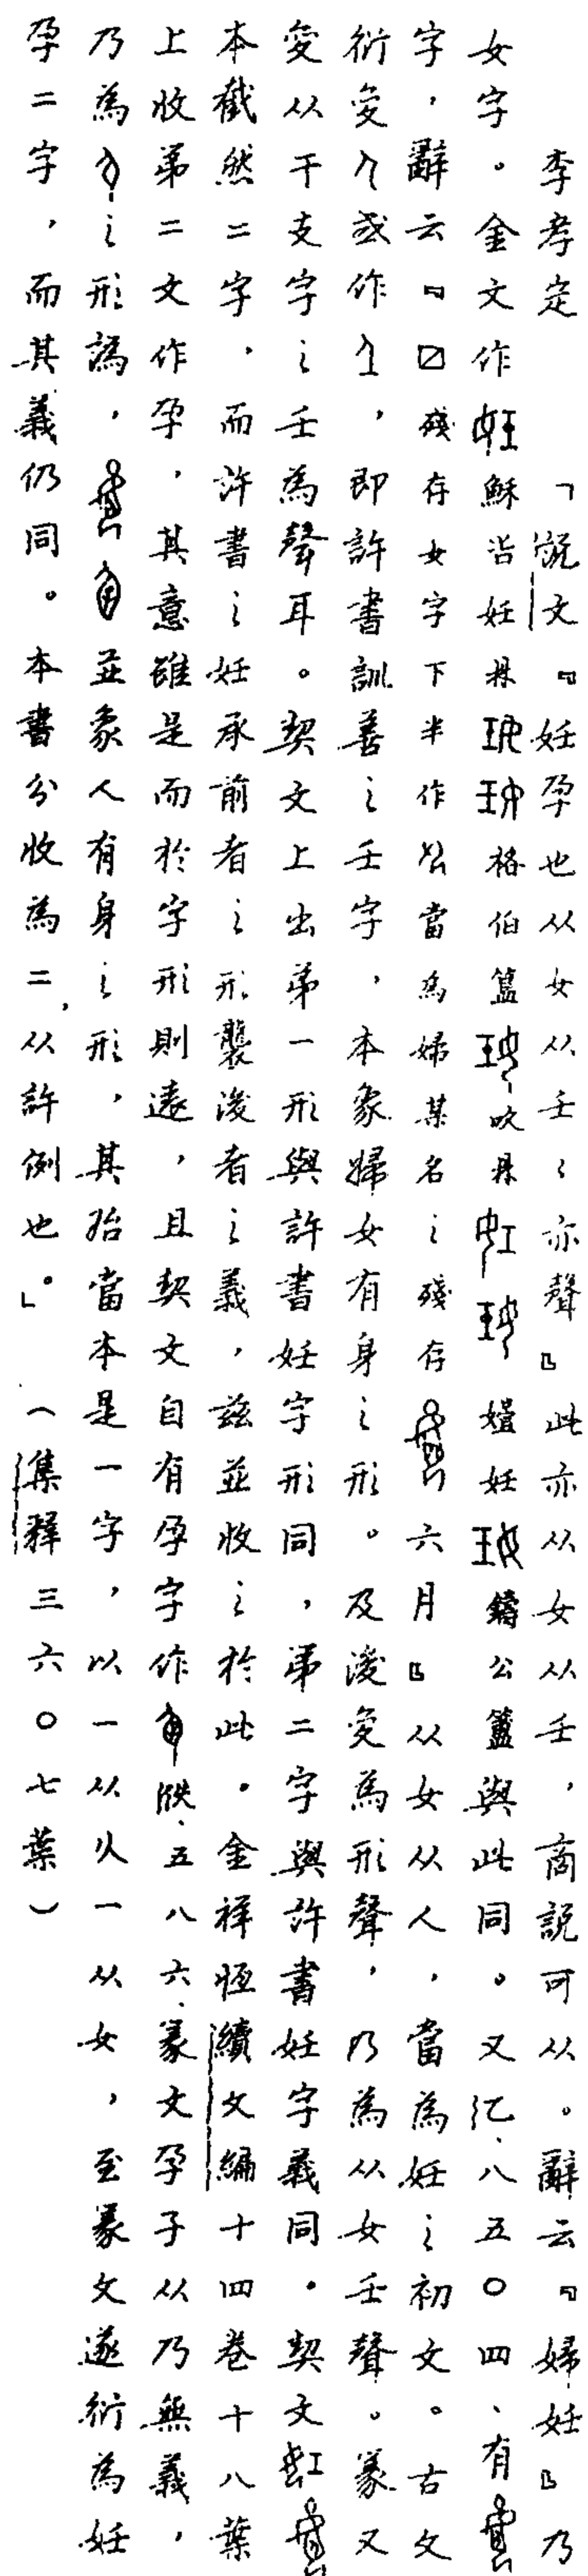 李孝定　「說文『妊孕也从女从壬壬亦聲』此亦从女从壬，商說可从。辭云『婦妊』乃
女字。金文作 穌冶妊鼎 格伯簋 吹鼎 㜏妊 鑄公簠與此同。又乙、八五〇四、有
字，辭云『☑殘存女字下半作 當為婦某名之殘存 六月』从女从人，當為妊之初文。古文
衍變人或作 ，即許書訓善之壬字，本象婦女有身之形。及後變為形聲，乃為从女壬聲。篆又
變从干支字之壬為聲耳。契文上出弟一形與許書妊字形同，弟二字與許書妊字義同。契文
本截然二字，而許書之妊承前者之形襲後者之義，茲並收之於此。金祥恆續文編十四卷十八葉
上收弟二文作孕，其意雖是而於字形則遠，且契文自有孕字作 佚、五八六、篆文孕子从乃無義，
乃為 之形譌， 並象人有身之形，其始當本是一字，以一从人一从女，至篆文遂衍為妊
孕二字，而其義仍同。本書分收為二，从許例也。」（集釋三六〇七葉）